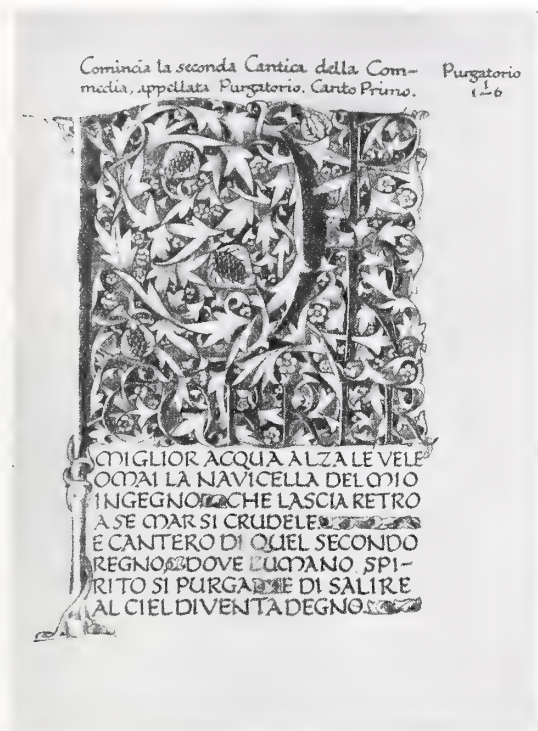 Comincia la seconda Cantica della Com-
media, appellata Purgatorio. Canto Primo.
Purgatorio
1
1–6
PER
CORRER
MIGLIOR ACQUA ALZA LE VELE
OMAI LA NAVICELLA DEL MIO
INGEGNO CHE LASCIA RETRO
A SE MAR SI CRUDELE
E CANTERO DI QUEL SECONDO
REGNO DOVE LUMANO SPI-
RITO SI PURGA E DI SALIRE
AL CIEL DIVENTA DEGNO